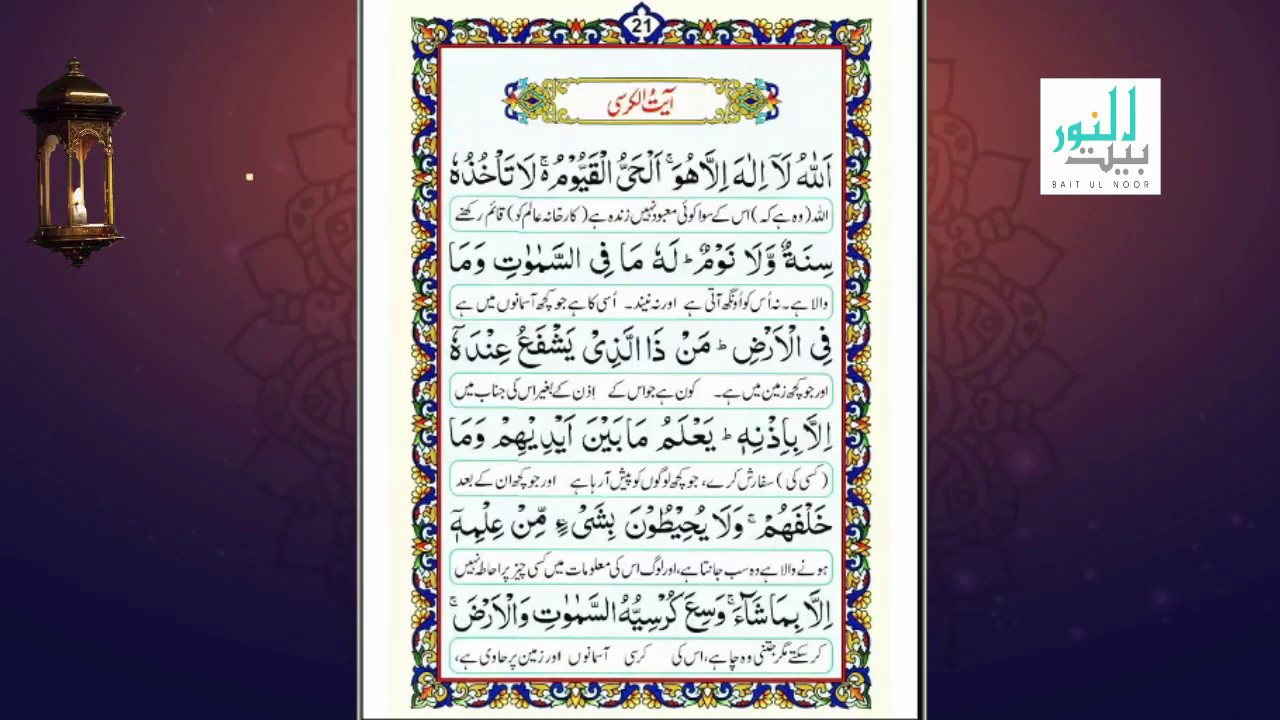 21
آیتُ الکرسی
اَللّٰهُ لَاۤ اِلٰهَ اِلَّا هُوَ ۚ اَلْحَیُّ الْقَیُّوْمُ ۚ لَا تَاْخُذُهٗ
اللہ (وہ ہے کہ) اس کے سوا کوئی معبود نہیں زندہ ہے (کارخانہ عالم کو) قائم رکھنے
سِنَةٌ وَّلَا نَوْمٌ ؕ لَهٗ مَا فِی السَّمٰوٰتِ وَمَا
والا ہے۔ نہ اُس کو اُونگھ آتی ہے اور نہ نیند۔ اُسی کا ہے جو کچھ آسمانوں میں ہے
فِی الْاَرْضِ ؕ مَنْ ذَا الَّذِیْ یَشْفَعُ عِنْدَهٗۤ
اور جو کچھ زمین میں ہے۔ کون ہے جو اس کے اِذن کے بغیر اس کی جناب میں
اِلَّا بِاِذْنِهٖ ؕ یَعْلَمُ مَا بَیْنَ اَیْدِیْهِمْ وَمَا
(کسی کی) سفارش کرے، جو کچھ لوگوں کو پیش آ رہا ہے اور جو کچھ ان کے بعد
خَلْفَهُمْ ۚ وَلَا یُحِیْطُوْنَ بِشَیْءٍ مِّنْ عِلْمِهٖۤ
ہونے والا ہے وہ سب جانتا ہے، اور لوگ اس کی معلومات میں کسی چیز پر احاطہ نہیں
اِلَّا بِمَا شَآءَ ۚ وَسِعَ كُرْسِیُّهُ السَّمٰوٰتِ وَالْاَرْضَ ۚ
کر سکتے مگر جتنی وہ چاہے، اس کی کرسی آسمانوں اور زمین پر حاوی ہے،
بیت النور
BAIT UL NOOR